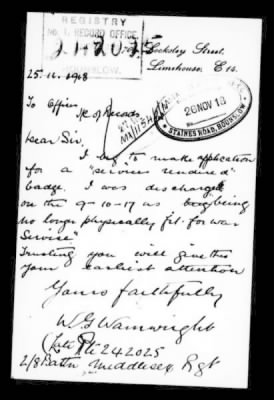 REGISTRY
No. 1. RECORD OFFICE
HOUNSLOW.
Locksley Street,
Limehouse. E 14.
25.11.1918
26 NOV 18
STAINES ROAD, HOUNSLOW
To Officer
i/c of Records
Dear Sir,
I beg to make application
for a "services rendered"
badge. I was discharged
on the 9-10-17 as being
no longer physically fit for war
Service"
Trusting you will give this
your earliest attention
Yours faithfully
W G Wainwright
(Late Pte 242025
2/8 Battn Middlesex Rgt